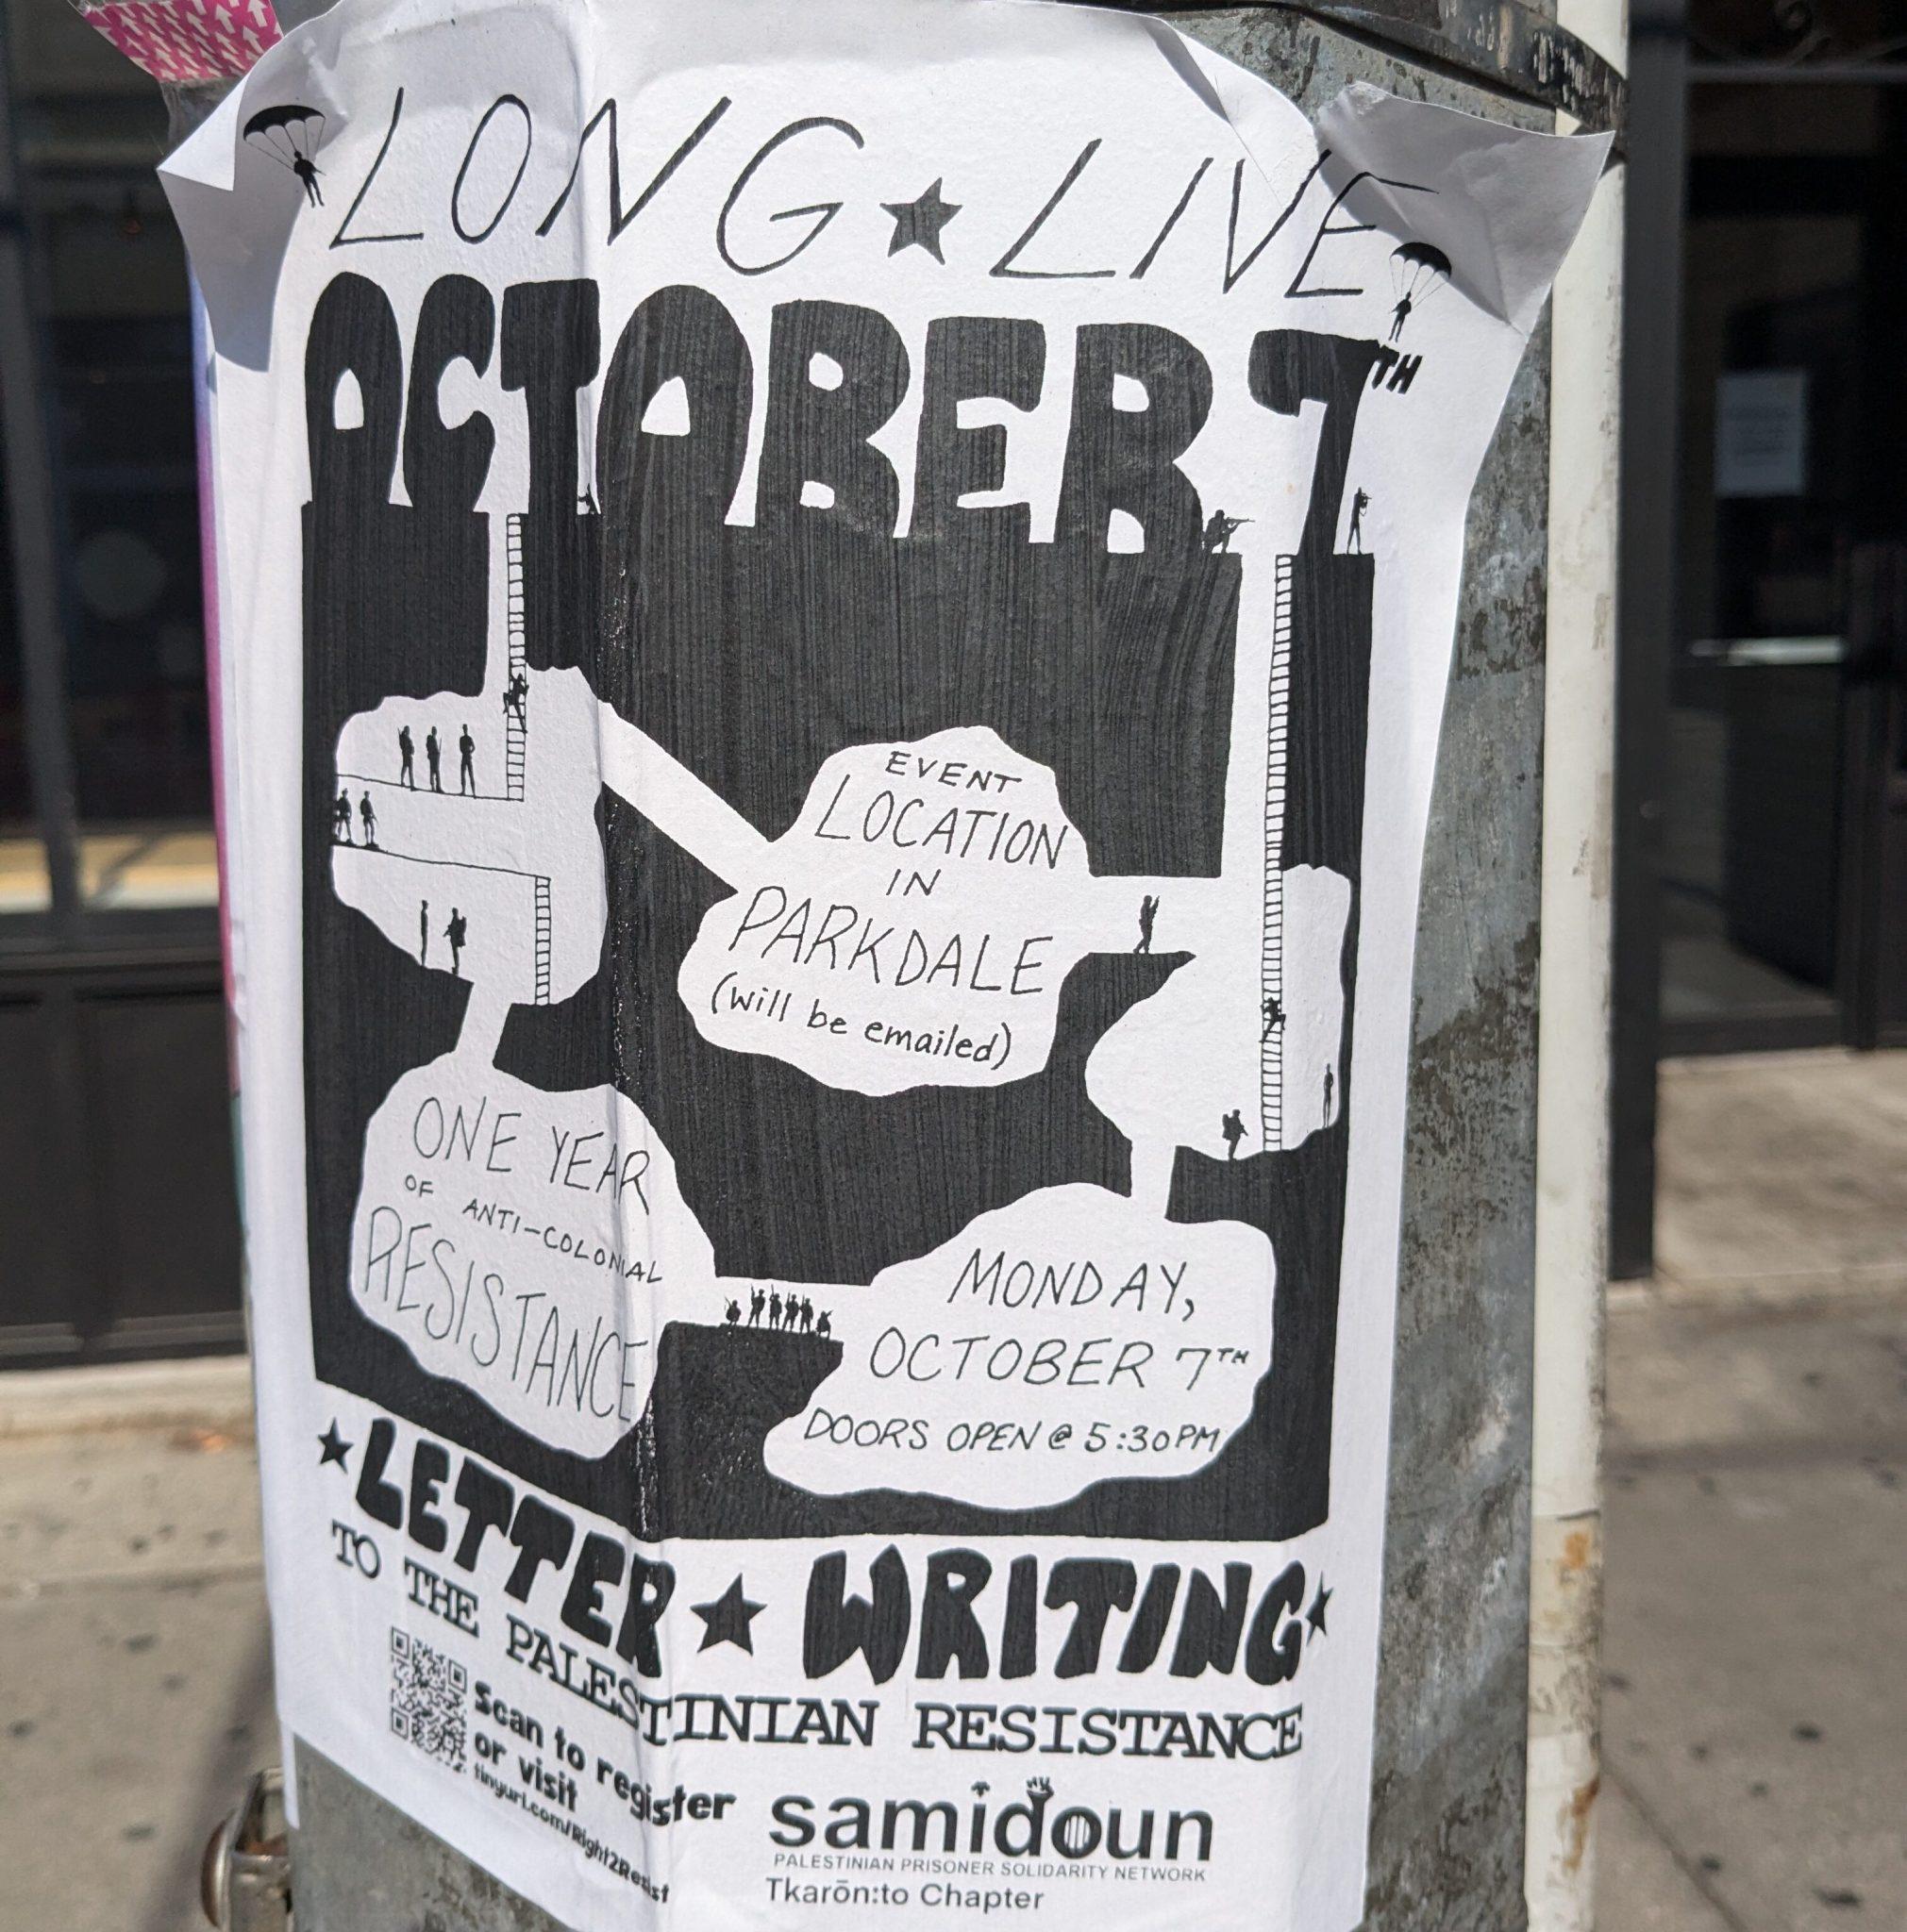 LONG ★ LIVE
OCTOBER 7TH
EVENT
LOCATION
IN
PARKDALE
(will be emailed)
ONE YEAR
OF ANTI-COLONIAL
RESISTANCE
MONDAY,
OCTOBER 7TH
DOORS OPEN @ 5:30PM
★ LETTER ★ WRITING ★
TO THE PALESTINIAN RESISTANCE
Scan to register
or visit
tinyurl.com/Right2Resist
samidoun
PALESTINIAN PRISONER SOLIDARITY NETWORK
Tkarōn:to Chapter